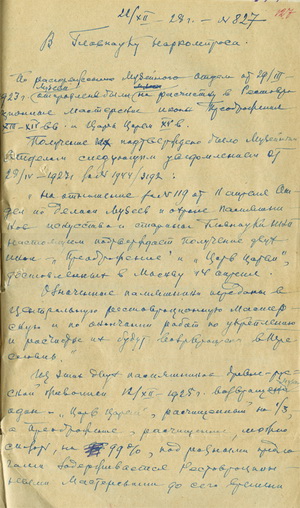 22/XII - 28 г. - № 827
127
В Главнауку Наркомпроса.
По распоряжению Музейного отдела от 29/III
1927 г. отправлены были на расчистку в Реставра-
ционные Мастерские иконы Преображение
и Царь Царей
Получение их подтверждено было Музейным
отделом следующим уведомлением от
29/IV - 1927 г. за №
"На отношение за № 119 от 11 апреля
дел по делам Музеев и охране памятни-
ков искусства и старины Главнауки НКП
настоящим подтверждает получение двух
икон - "Преображение" и "Царь Царей",
доставленных в Москву апреля.
Означенные памятники переданы в
Центральную реставрационную Мастер-
скую и по окончании работ по укреплению
и расчистке их будут возвращены в Пере
Из этих двух памятников древне-рус-
ской живописи 12/XII - 1928 г. возвращен
один - "Царь Царей", расчищенный на 1/3,
а Преображение, расчищенное, можно
сказать, на 99%, под разными предло-
гами задерживается Реставрацион-
ными Мастерскими до сего времени